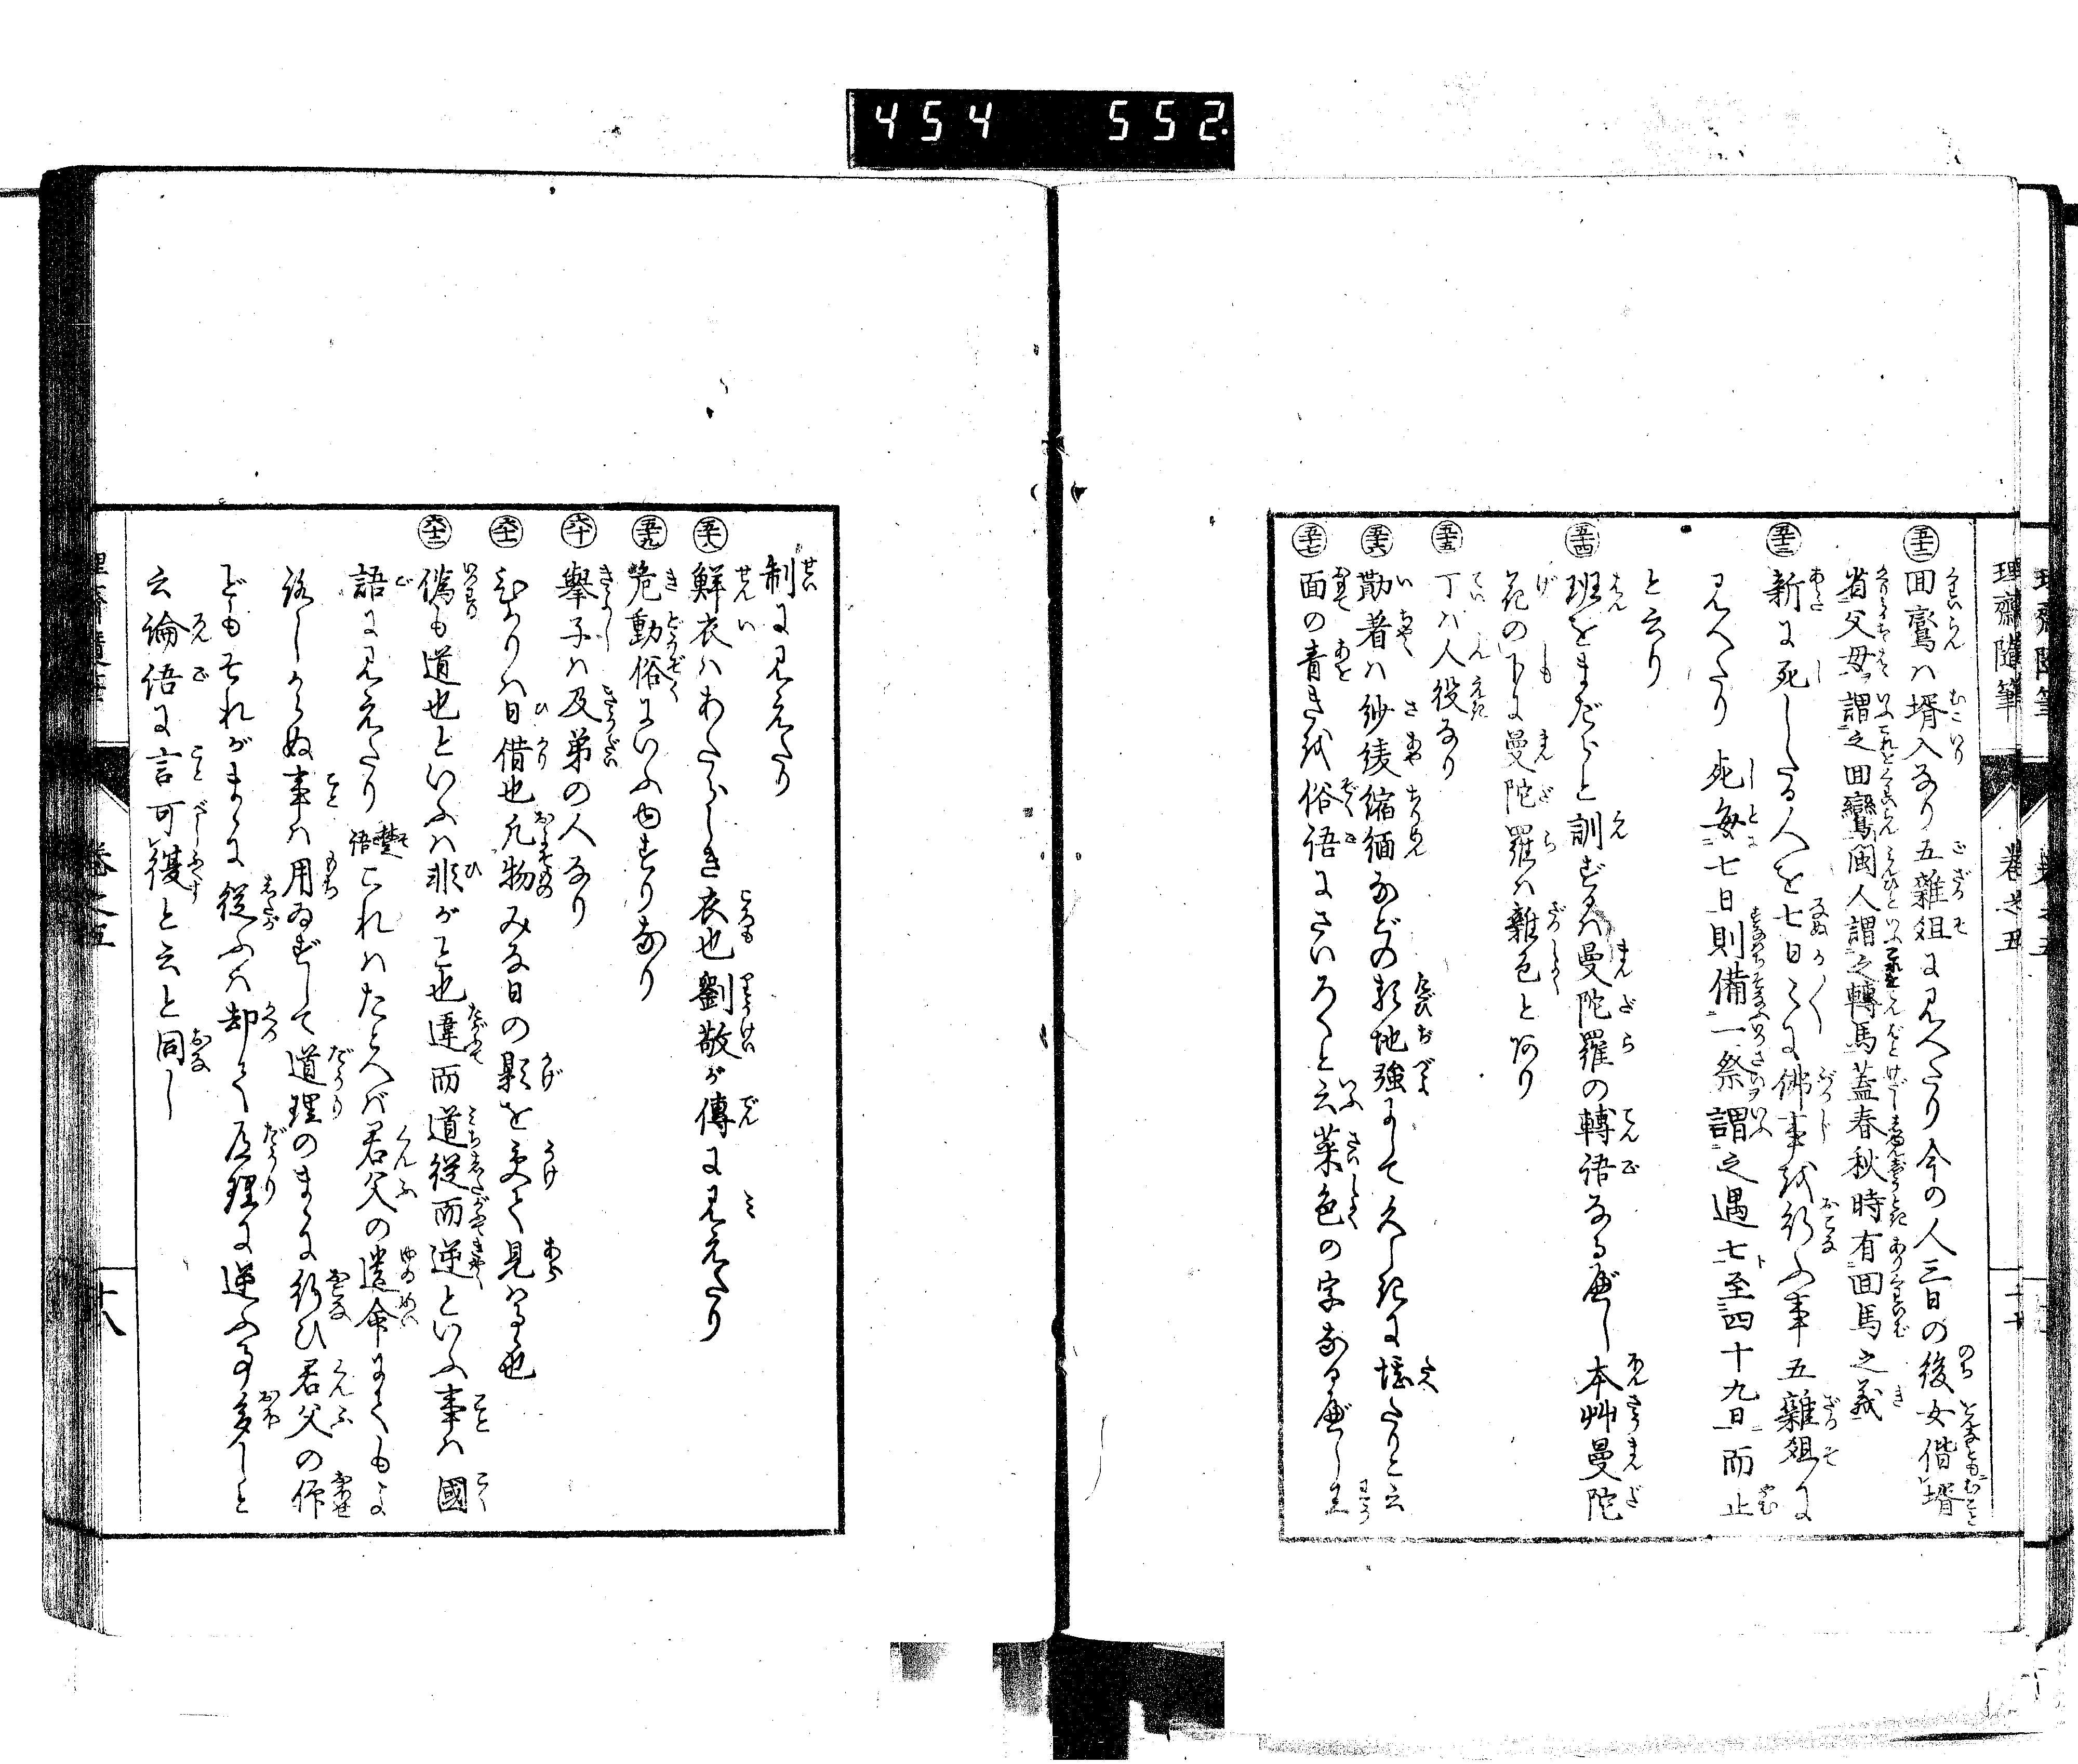 454 552
理齋隨筆 卷之五
五十二 回鸞ハ壻入なり五雜俎に見へたり今の人三日の後女偕壻
省父母謂之回鸞閩人謂之轉馬蓋春秋時有回馬之義
五十三 新に死したる人を七日〳〵に佛事を行ふ事五雜俎に
見へたり死毎七日則備一祭謂之遇七至四十九日而止
と云り
五十四 班をまだらと訓ずるハ曼陀羅の轉語なる歟し本艸曼陀
花の下に曼陀羅ハ雜色とあり
五十五 丁ハ人役なり
五十六 着ハ紗綾縮緬などの類地強にして久しきに堪たりと云
五十七 面の青きを俗語にさいろくと云菜色の字なる歟し王
制に見えたり
五十八 鮮衣ハあたらしき衣也劉敬が傳に見えたり
五十九 動俗にいふゆすりなり
六十 擧子ハ及第の人なり
六十一 ひかりハ日借也凡物みな日の影を受て見はるゝ也
六十二 僞も道也といふハ非がこと也違而道從而逆といふ事ハ國
語に見えたり 楚語 これハたとへバ君父の遺命にてもよ
ろしからぬ事ハ用ゐずして道理のまゝに行ひ君父の仰
どもそれがまゝに從ふハ却て道理に逆ふ事多しと
云論語に言可復と云と同じ
卷之五
十八